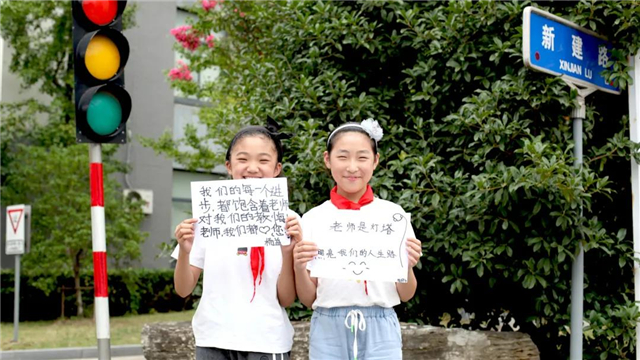 新建路
XINJIAN LU
我们的每一个进
步,都饱含着老师
对我们的教诲
老师,我们都♡您
老师是灯塔
照亮我们的人生路